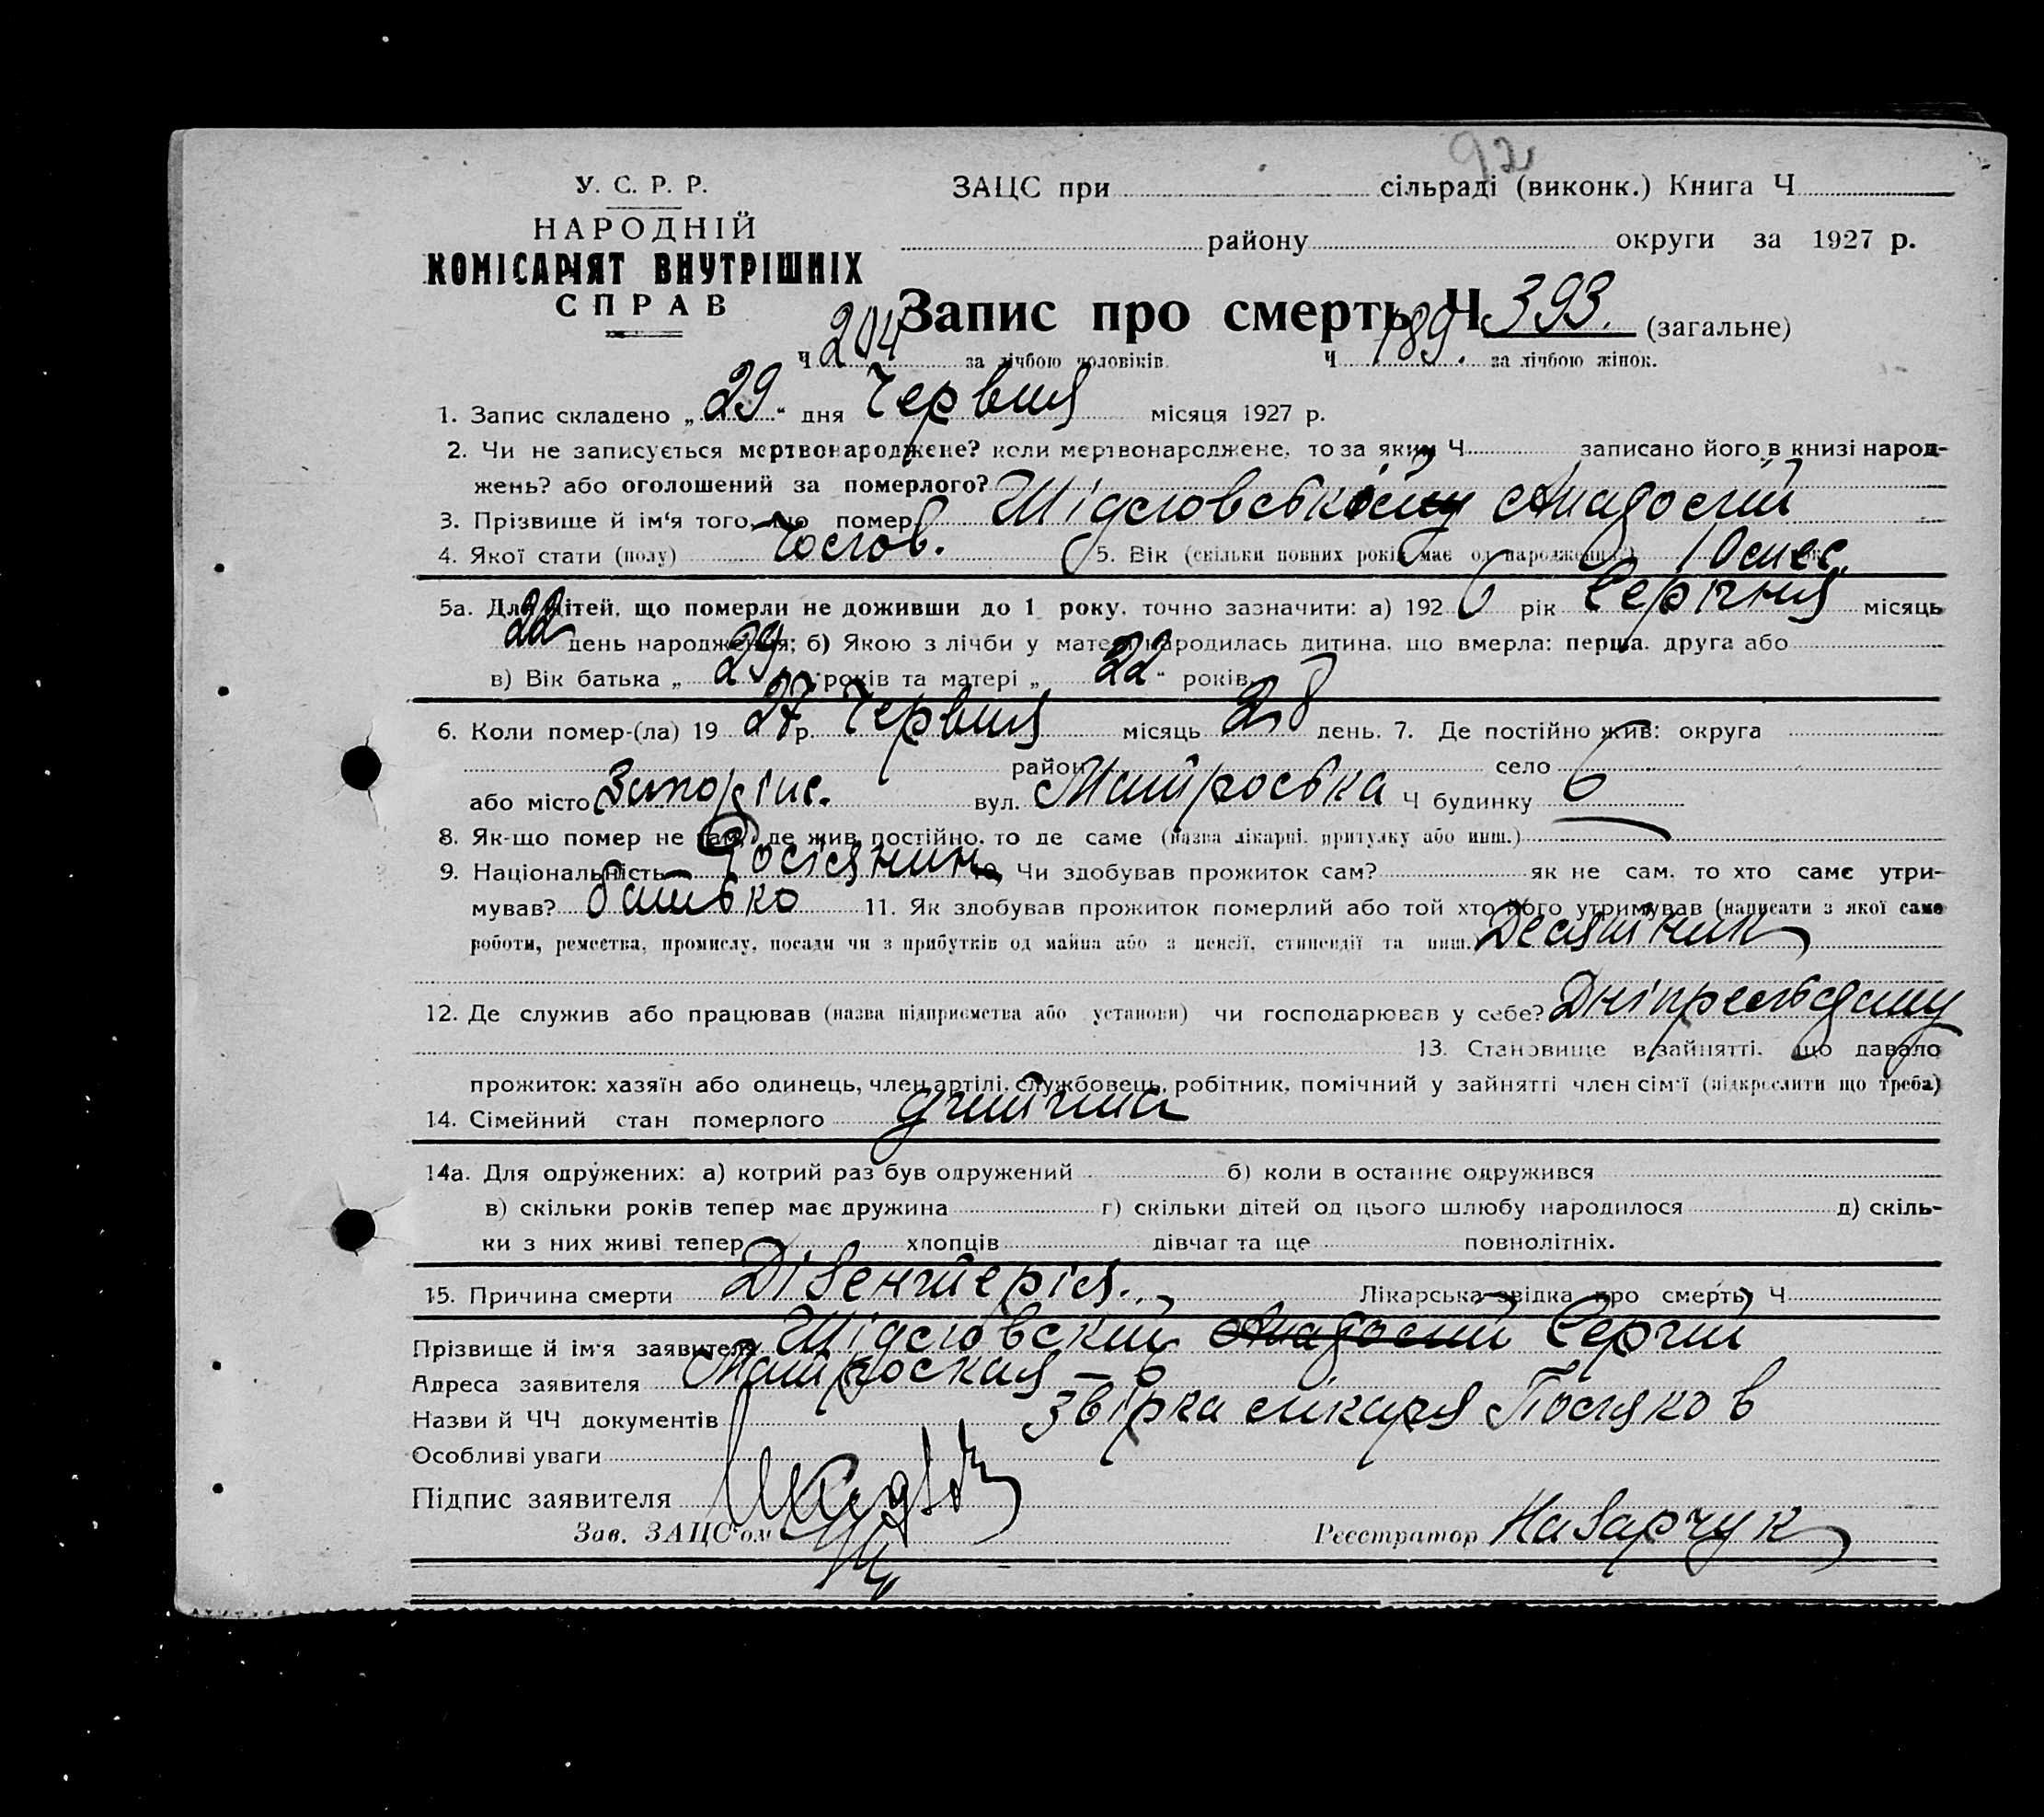 92
У. С. Р. Р.
НАРОДНІЙ
КОМІСАРІЯТ ВНУТРІШНІХ
СПРАВ
ЗАЦС при сільраді (виконк.) Книга Ч
району округи за 1927 р.
Запис про смерть Ч 393. (загальне)
Ч 204 за лічбою чоловіків Ч 189. за лічбою жінок.
1. Запис складено „29“ дня Червня місяця 1927 р.
2. Чи не записується мертвонароджене? коли мертвонароджене, то за яким Ч записано його в книзі народ-
жень? або оголошений за померлого?
3. Прізвище й ім‘я того, що помер Шідловський Анатолій
4. Якої стати (полу) Чолов. 5. Вік (скільки повних років має од народження?) 10 мес.
5а. Для дітей, що померли не доживши до 1 року, точно зазначити: а) 1926 рік Серпня місяць
22 день народження; б) Якою з лічби у матері народилась дитина, що вмерла: перша, друга або
в) Вік батька „29“ років та матері „22“ років
6. Коли помер-(ла) 1927 р. Червня місяць 28 день. 7. Де постійно жив: округа
район село
або місто Запоріж. вул. Матроська Ч будинку 6
8. Як-що помер не там, де жив постійно, то де саме (назва лікарні, притулку або инш.)
9. Національність Росіянин 10. Чи здобував прожиток сам? як не сам, то хто саме утри-
мував? батько 11. Як здобував прожиток померлий або той хто його утримував (написати з якої саме
роботи, ремества, промислу, посади чи з прибутків од майна або з пенсії, стипендії та инш. Десятник
12. Де служив або працював (назва підприємства або установи) чи господарював у себе?
13. Становище в зайнятті, що давало
прожиток: хазяїн або одинець, член артілі, службовець, робітник, помічний у зайнятті член сім‘ї (підкреслити що треба)
14. Сімейний стан померлого дитина
14а. Для одружених: а) котрий раз був одружений б) коли в останнє одружився
в) скільки років тепер має дружина г) скільки дітей од цього шлюбу народилося д) скіль-
ки з них живі тепер хлопців дівчат та ще повнолітніх.
15. Причина смерти Дізентерія. Лікарська звідка про смерть Ч
Прізвище й ім‘я заявителя Шідловский Анатолий Сергий
Адреса заявителя Матроская – 6
Назви й ЧЧ документів звірка лікаря Поляков
Особливі уваги
Підпис заявителя
Зав. ЗАЦС‘ом Реєстратор Назарчук